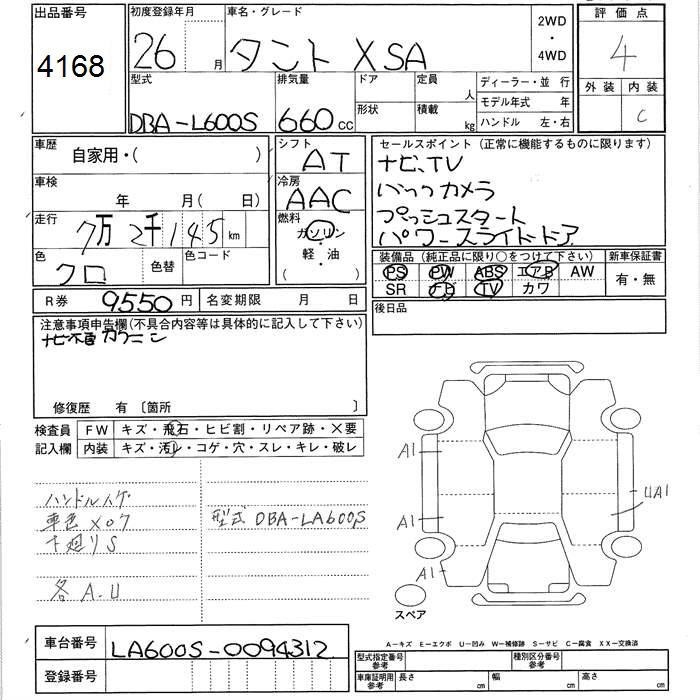 出品番号
4168
初度登録年月
26 月
車名・グレード
タント XSA
2WD
・
4WD
評価点
4
外装 内装
C
型式
DBA-L600S
排気量
660 CC
ドア
形状
定員
人
積載
kg
ディーラー・並 行
モデル年式 年
ハンドル 左・右
車歴
自家用・( )
車検
年 月( 日)
走行
7万 2千 145 km
色
クロ
色替
色コード
シフト
AT
冷房
AAC
燃料
ガソリン
・
軽・油
( )
セールスポイント (正常に機能するものに限ります)
ナビ、TV
バックカメラ
プッシュスタート
パワースライドドア
装備品 (純正品に限り○をつけて下さい)
PS PW ABS エアB AW
SR ナビ TV カワ
新車保証書
有・無
R券 9550 円
名変期限 月 日
後日品
注意事項申告欄(不具合内容等は具体的に記入して下さい)
修復歴 有 〔箇所 〕
検査員
記入欄
FW キズ・飛石・ヒビ割・リペア跡・×要
内装 キズ・汚レ・コゲ・穴・スレ・キレ・破レ
ハンドルスゲ
車色 X07
下廻りS
各 A.U
型式 DBA-LA600S
A1
A1
A1
UA1
スペア
車台番号
LA600S-0094312
登録番号
A-キズ E-エクボ U-凹み W-補修跡 S-サビ C-腐食 XX-交換済
型式指定番号
参考
種別区分番号
参考
車庫証明用
参考
長さ cm
幅 cm
高さ cm